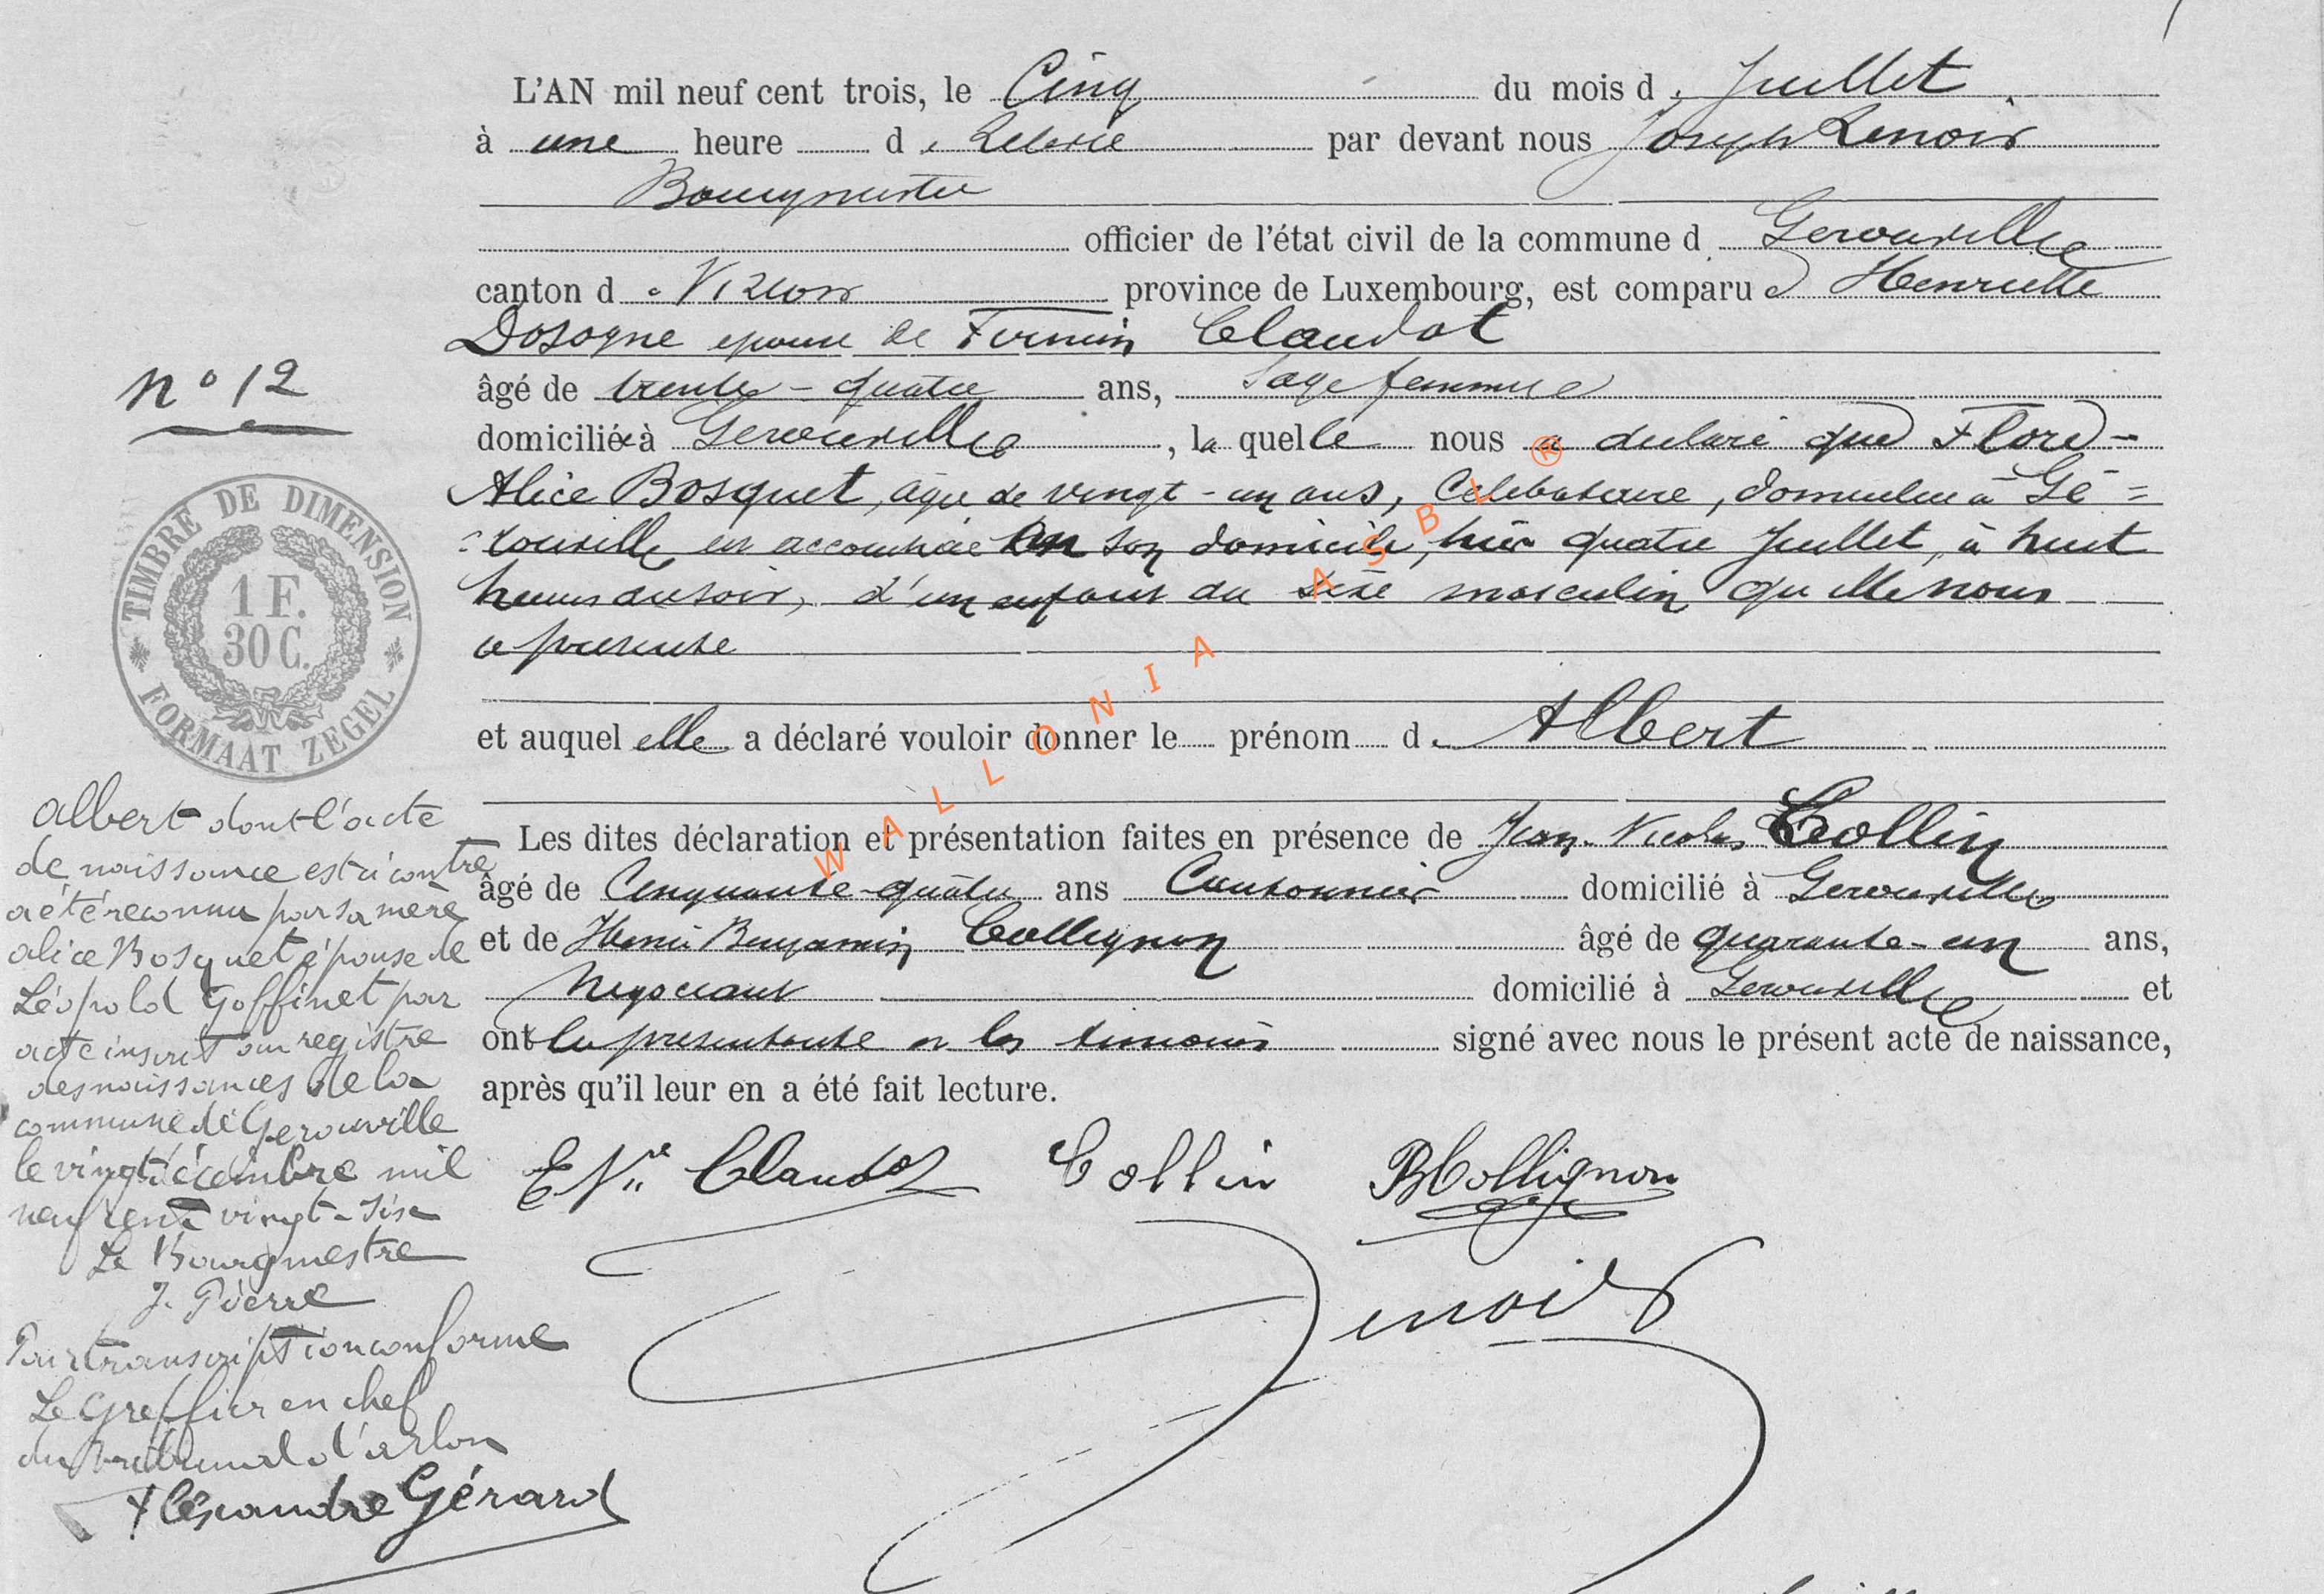 L'AN mil neuf cent trois, le Cinq du mois d. Juillet
à une heure d. Relevée par devant nous Joseph Lenoir
Bourgmestre
officier de l'état civil de la commune d Gerouville
canton d. Virton province de Luxembourg, est comparu e Henriette
Dosogne epouse de Firmin Claudot
n° 12
âgé de trente-quatre ans, Sage femme
domiciliée à Gerouville, la quelle nous a declaré que Flore-
Alice Bosquet, agée de vingt-un ans, Celibataire, domiciliée à Gé=
=rouville est accouchée en son domicile, hier quatre Juillet, à huit
heures du soir, d'un enfant du sexe masculin qu'elle nous
a présenté
TIMBRE DE DIMENSION
1 F.
30 C.
FORMAAT ZEGEL
et auquel elle a déclaré vouloir donner le prénom d. Albert
Les dites déclaration et présentation faites en présence de Jean-Nicolas Collin
âgé de Cinquante-quatre ans Cantonnier domicilié à Gerouville
et de Henri Benjamin Collignon âgé de quarante-un ans,
Negociant domicilié à Gerouville et
ont la presentante et les témoins signé avec nous le présent acte de naissance,
après qu'il leur en a été fait lecture.
Claudot Collin B Collignon
Lenoir
albert dont l'acte
de naissance est ci contre
a été reconnu par sa mère
alice Bosquet épouse de
Léopold Goffinet par
acte inscrit au registre
des naissances de la
commune de Gerouville
le vingt décembre mil
neuf cent vingt-six
Le Bourgmestre
J. Pierre
Pour transcription conforme
Le Greffier en chef
du tribunal d'arlon
Alexandre Gérard
WALLONIA ASBL ®